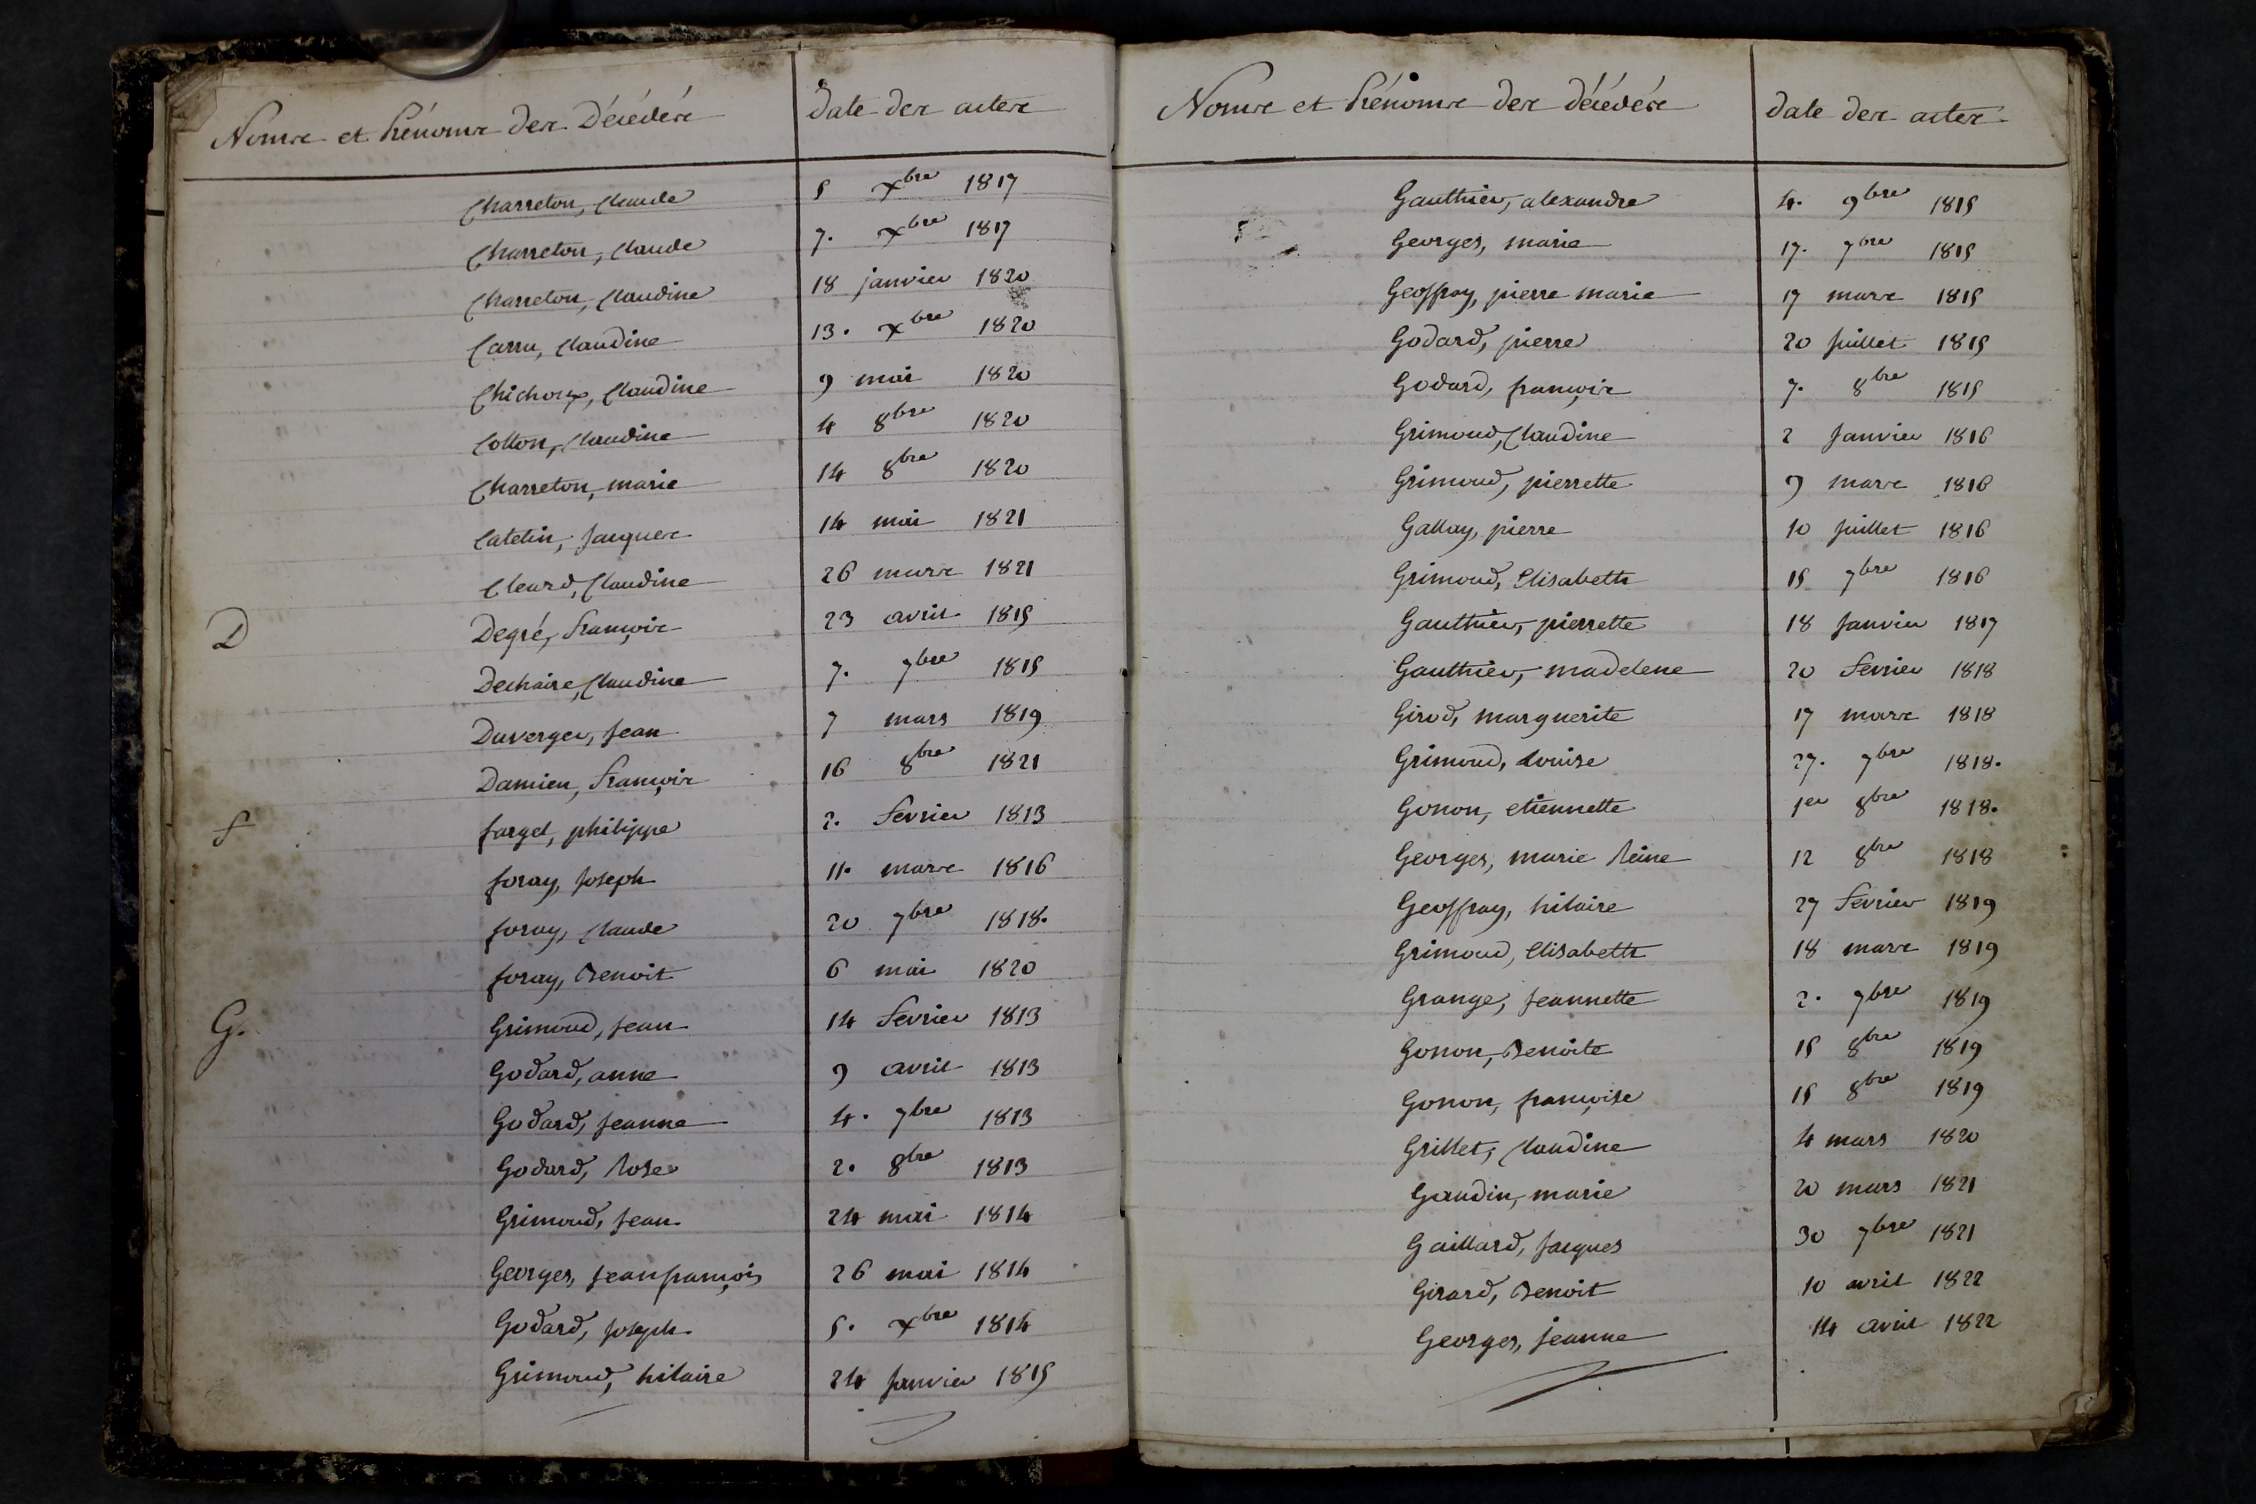 Noms et Prénoms des Décédés date des actes
Charreton, Claude 5 xbre 1817
Charreton, Claude 7. xbre 1817
Charreton, Claudine 18 janvier 1820
Carru, Claudine 13. xbre 1820
Chichoux, Claudine 9 mai 1820
Cotton, Claudine 4 8bre 1820
Charreton, marie 14 8bre 1820
Catelin, Jacques 14 mai 1821
Cleard, Claudine 26 mars 1821
D Degré, François 23 avril 1815
Dechaire, Claudine 7. 7bre 1815
Duverger, Jean 7 mars 1819
Damien, François 16 8bre 1821
F farget, philippe 2. Fevrier 1813
foray, Joseph 11. mars 1816
foray, Claude 20 7bre 1818.
foray, Benoit 6 mai 1820
G. Grimoud, Jean 14 Fevrier 1813
Godard, anne 9 avril 1813
Godard, Jeanne 4. 7bre 1813
Godard, Rose 2. 8bre 1813
Grimoud, Jean 24 mai 1814
Georges, Jean françois 26 mai 1814
Godard, Joseph 5. xbre 1814
Grimoud, hilaire 24 Janvier 1815
Noms et Prénoms des décédés date des actes
Gauthier, alexandre 4. 9bre 1815
Georges, marie 17. 7bre 1815
Geoffray, pierre marie 17 mars 1815
Godard, pierre 20 Juillet 1815
Godard, françois 7. 8bre 1815
Grimoud, Claudine 2 Janvier 1816
Grimoud, pierrette 9 mars 1816
Gallay, pierre 10 Juillet 1816
Grimoud, Elisabeth 15 7bre 1816
Gauthier, pierrette 18 Janvier 1817
Gauthier, madelene 20 Fevrier 1818
Girod, marguerite 17 mars 1818
Grimoud, Louise 27. 7bre 1818.
Gonon, etiennette 1er 8bre 1818.
Georges, marie Reine 12 8bre 1818
Geoffray, hilaire 27 Fevrier 1819
Grimoud, Elisabeth 18 mars 1819
Grange, Jeannette 2. 7bre 1819
Gonon, Benoite 15 8bre 1819
Gonon, françoise 15 8bre 1819
Grillet, Claudine 4 mars 1820
Gaudin, marie 20 mars 1821
Gaillard, Jacques 30 7bre 1821
Girard, Benoit 10 avril 1822
Georges, jeanne 14 avril 1822